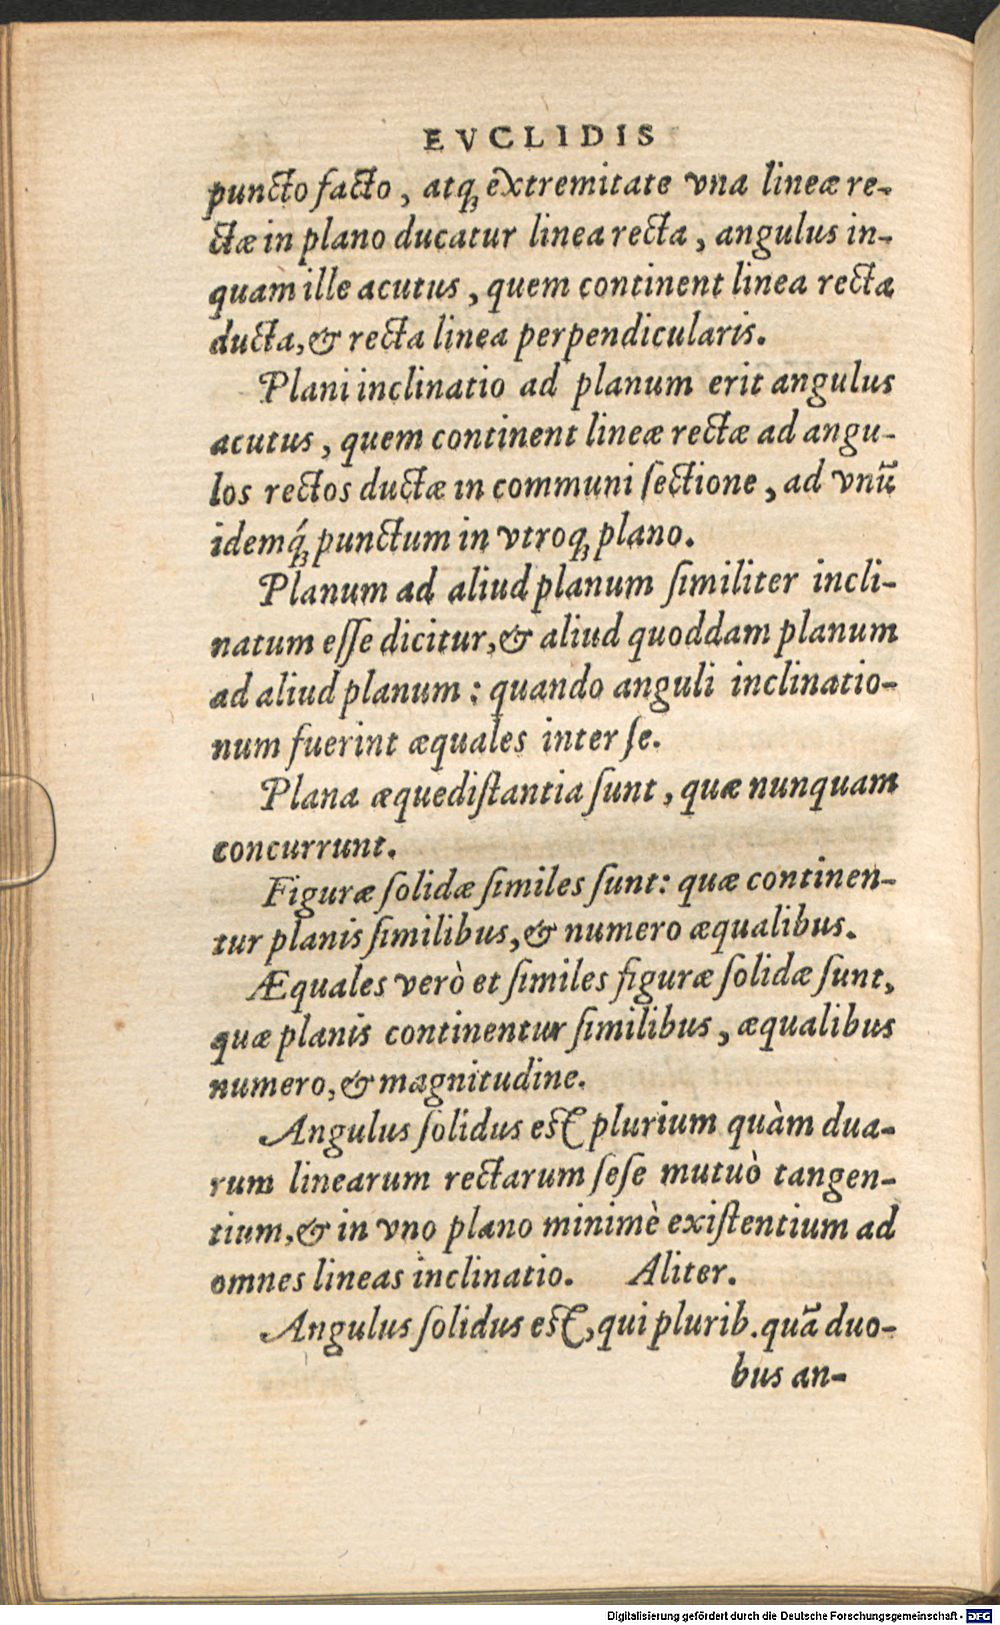 EVCLIDIS
puncto facto, atq; extremitate vna lineæ re-
ctæ in plano ducatur linea recta, angulus in-
quam ille acutus, quem continent linea recta
ducta, & recta linea perpendicularis.
Plani inclinatio ad planum erit angulus
acutus, quem continent lineæ rectæ ad angu-
los rectos ductæ in communi ſectione, ad vnũ
idemq́; punctum in vtroq; plano.
Planum ad aliud planum ſimiliter incli-
natum eſſe dicitur, & aliud quoddam planum
ad aliud planum: quando anguli inclinatio-
num fuerint æquales inter ſe.
Plana æquediſtantia ſunt, quæ nunquam
concurrunt.
Figuræ ſolidæ ſimiles ſunt: quæ continen-
tur planis ſimilibus, & numero æqualibus.
Æquales verò et ſimiles figuræ ſolidæ ſunt,
quæ planis continentur ſimilibus, æqualibus
numero, & magnitudine.
Angulus ſolidus eſt plurium quàm dua-
rum linearum rectarum ſeſe mutuò tangen-
tium, & in vno plano minimè exiſtentium ad
omnes lineas inclinatio. Aliter.
Angulus ſolidus eſt, qui plurib. quã duo-
bus an-
Digitalisierung gefördert durch die Deutsche Forschungsgemeinschaft - DFG